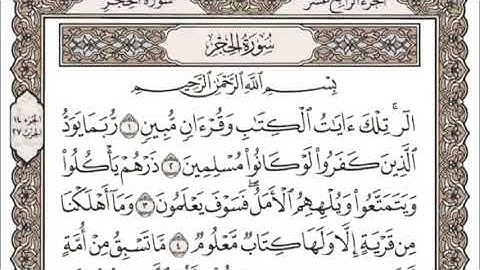 الجزء الرابع عشر
سورة الحجر
سُورَةُ الحِجْرِ
بِسْمِ اللَّهِ الرَّحْمَٰنِ الرَّحِيمِ
الٓر ۚ تِلْكَ ءَايَٰتُ ٱلْكِتَٰبِ وَقُرْءَانٍ مُّبِينٍ ١ رُّبَمَا يَوَدُّ
ٱلَّذِينَ كَفَرُوا۟ لَوْ كَانُوا۟ مُسْلِمِينَ ٢ ذَرْهُمْ يَأْكُلُوا۟
وَيَتَمَتَّعُوا۟ وَيُلْهِهِمُ ٱلْأَمَلُ ۖ فَسَوْفَ يَعْلَمُونَ ٣ وَمَآ أَهْلَكْنَا
مِن قَرْيَةٍ إِلَّا وَلَهَا كِتَابٌ مَّعْلُومٌ ٤ مَّا تَسْبِقُ مِنْ أُمَّةٍ
الجزء ١٤
الحزب ٢٧